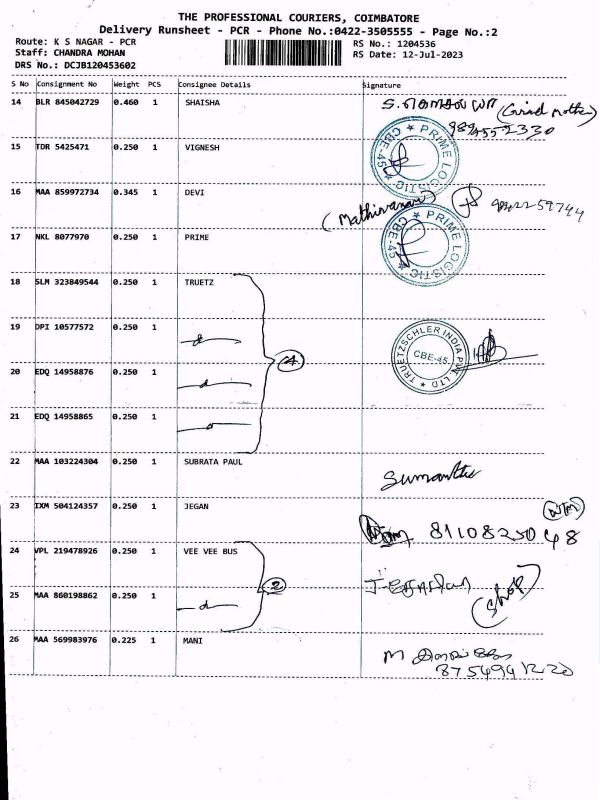 THE PROFESSIONAL COURIERS, COIMBATORE
Delivery Runsheet - PCR - Phone No.:0422-3505555 - Page No.:2
Route: K S NAGAR - PCR
RS No.: 1204536
Staff: CHANDRA MOHAN
RS Date: 12-Jul-2023
DRS No.: DCJB120453602
S No Consignment No Weight PCS Consignee Details Signature
14 BLR 845042729 0.460 1 SHAISHA
15 TDR 5425471 0.250 1 VIGNESH
PRIME LOGISTIC CBE-45
16 MAA 859972734 0.345 1 DEVI
(Mathivanan)
17 NKL 8077970 0.250 1 PRIME
PRIME LOGISTIC CBE-45
18 SLM 323849544 0.250 1 TRUETZ
19 DPI 10577572 0.250 1
TRUETZSCHLER INDIA PVT. LTD
CBE-45.
20 EDQ 14958876 0.250 1
4
21 EDQ 14958865 0.250 1
22 MAA 103224304 0.250 1 SUBRATA PAUL
23 IXM 504124357 0.250 1 JEGAN
24 VPL 219478926 0.250 1 VEE VEE BUS
2
25 MAA 860198862 0.250 1
(Shop)
26 MAA 569983976 0.225 1 MANI